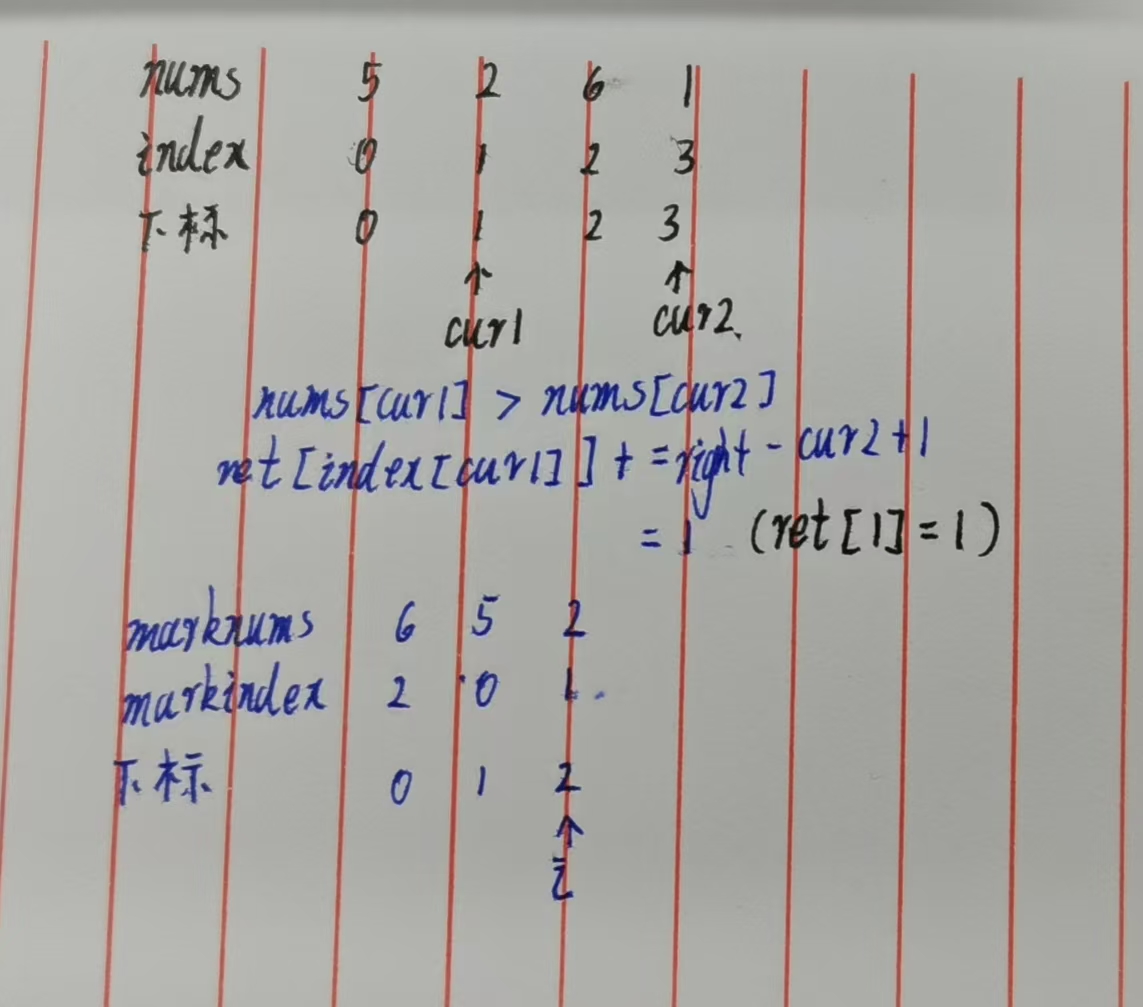 nums 5 2 6 1
index 0 1 2 3
下标 0 1 2 3
↑ ↑
cur1 cur2.
nums[cur1] > nums[cur2]
ret[index[cur1]] += right - cur2+1
= 1 (ret[1]=1)
marknums 6 5 2
markindex 2 0 1
下标 0 1 2
↑
i